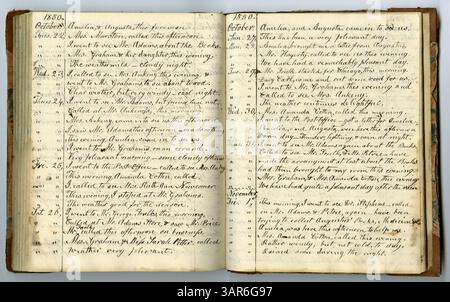 1880.
October Amelia, & Augusta, this forenoon.
Tues. 22 Mrs. Marston, called this afternoon.
" I went to see Mr. Adams about the Books.
" Mrs. Graham, and her daughter, this evening.
" The weather mild - cloudy night.
Wed. 23 I called to see Mrs. Ankeny, this morning. I
" went to Mr. Grahams to see about wood.
" Clear weather, but very windy - cool night.
Thurs. 24 I went to see Mr. but found him not.
" Called at the Bakery,
" Mrs. Ankeny came into see us this afternoon
" I saw Mr. Adams this afternoon, and
" this evening. Amelia, was in
" I went to Mr. Grahams, room
" Very pleasant morning - some cloudy afternoon
Fri. 25 I went to the Postoffice - called to see Mr.
" This morning, Amanda Cotter, called.
" I called to see Mrs. Newcomer.
" This evening, I stoped at Mr. Grahams.
" The weather good for the season.
Sat. 26 I went to Mr. George this morning.
" Called at Mr. Adams Store, and on Mr. Price
" Mr. called, this afternoon, on business
" Mrs. Graham, & Miss Sarah Potter, called
" Weather very pleasant.
1880.
October Amelia, and Augusta, came in to see us.
Sun. 27 This has been a very pleasant day.
Mon. 28 Amelia, brought me a letter from Augustus.
" Mr. Hagerty, called to see us this evening.
" We have had a remarkably pleasant day.
Tues. 29 Mr. Smith started for Chicago, this morning.
" Jay Call, came and cut some wood for us.
" I went to Mr. Grahams this evening and
" called to see Mrs. Ankeny.
" The weather continues delightful.
Wed. 30 Mrs. Amanda Cotter, called, this morning.
" I went to the Postoffice - got letter for Amelia,
" Amelia, and Augusta, were here this afternoon
" day cloudy, & rain at night.
Thurs. 31 I went to see Mr. Adams again about the Books.
" Called to see Mr. Peter, have
" made the arrangement at last about the Books
" had them brought to my room this evening.
" Mrs. Graham, & Amanda Cotter, this evening.
" We have had quite a pleasant day after the rain
November
Fri. 1. This morning, I went to see Mr. Stephens, called
" on Mr. Adams & Peter, again, have been
" trying to collect Augustus' books,
" Amelia, was here this afternoon, to help us
" Mrs. Amanda Cotter, called this evening.
" Rather windy, but not cold, to day.
" Rained some during the night.